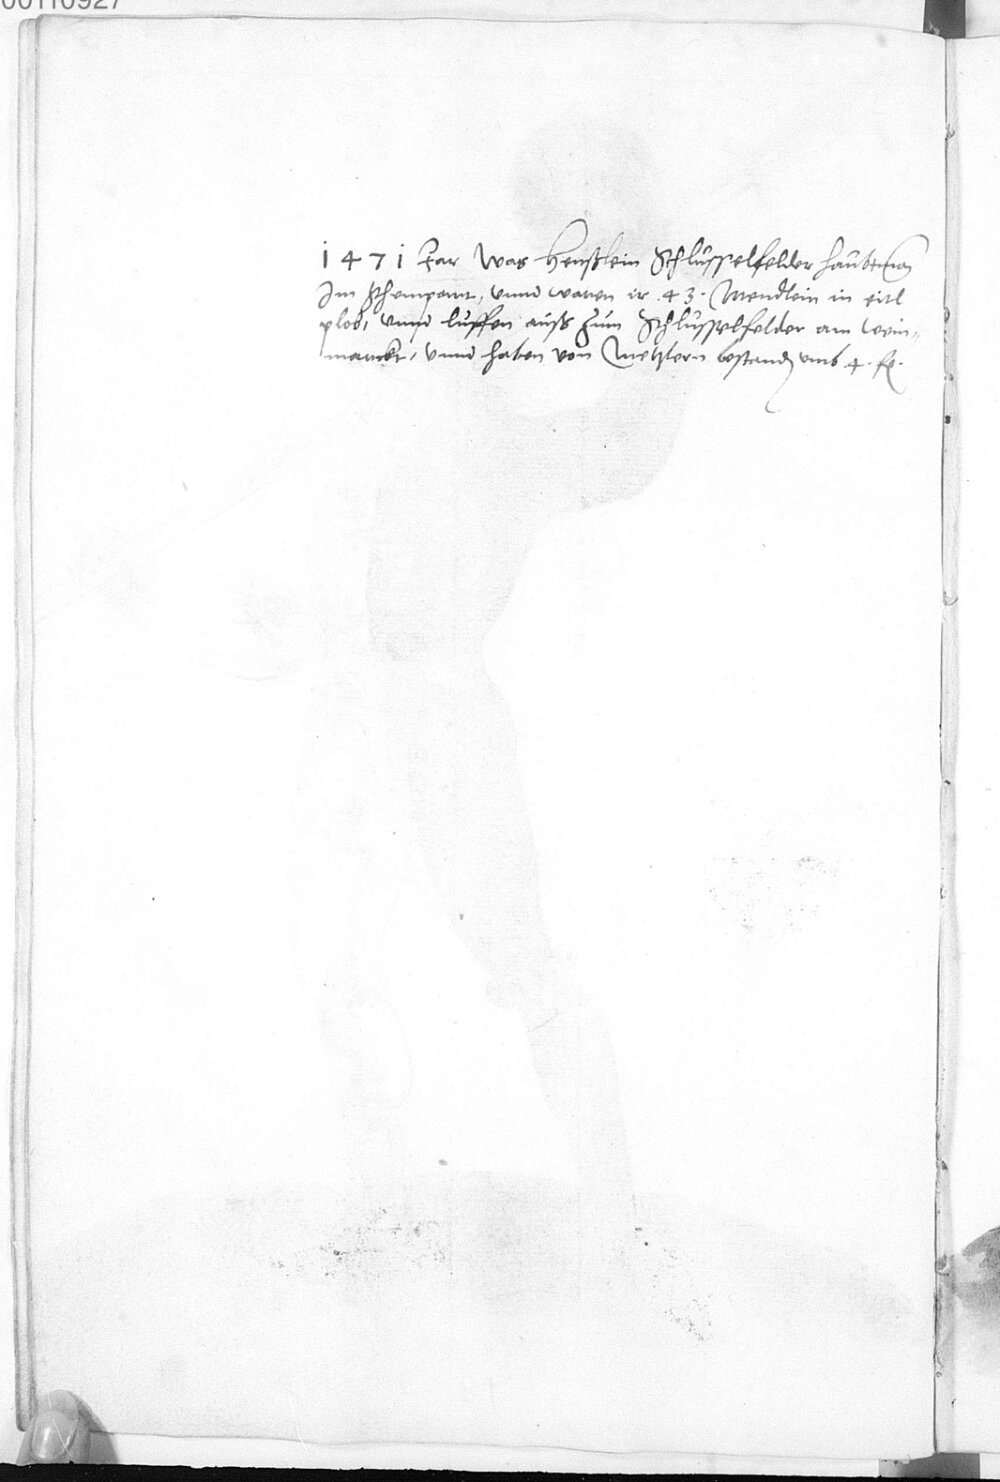 00110927
1471 Jar was Henßlein Schlüsselfelder haubtman
Im Schempart, vnnd waren ir .43. Mendlein in eitl
plob, vnnd luffen auß zum Schlüsselfelder am wein-
marckt, vnnd haben von Metzlern bestand vmb .4. fl.